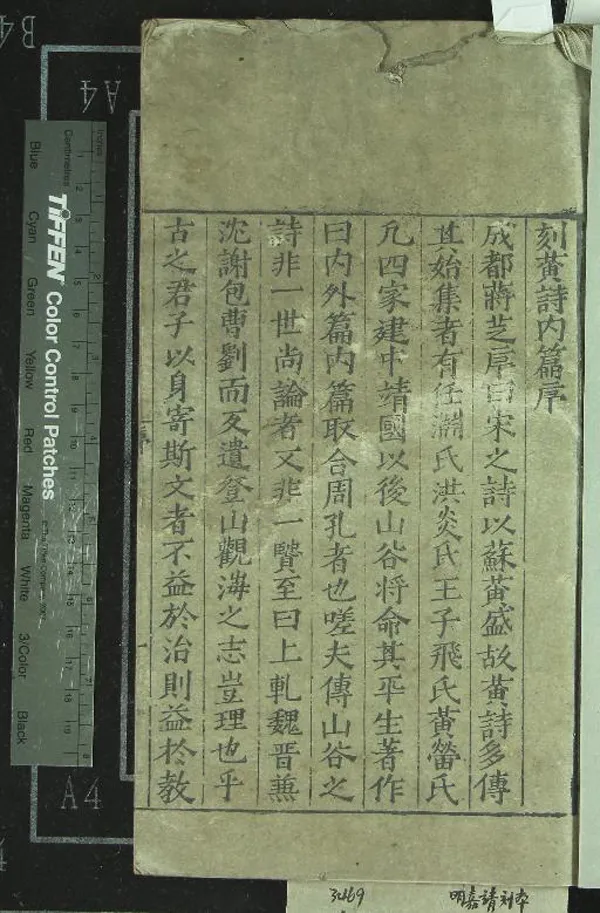 刻黃詩内篇序
成都蔣芝序曰宋之詩以蘇黃盛故黃詩多傳
其始集者有任淵氏洪炎氏王子飛氏黃㽦氏
凡四家建中靖國以後山谷将命其平生著作
曰内外篇内篇取合周孔者也嗟夫傳山谷之
詩非一世尚論者又非一賢至曰上軋魏晋蕪
沈謝包曹劉而反遺登山觀海之志豈理也乎
古之君子以身寄斯文者不益於治則益於教
序
一
B4
A4
A4
Inches
Centimetres
TIFFEN Color Control Patches
Blue
Cyan
Green
Yellow
Red
Magenta
White
3/Color
Black
明嘉靖刻本